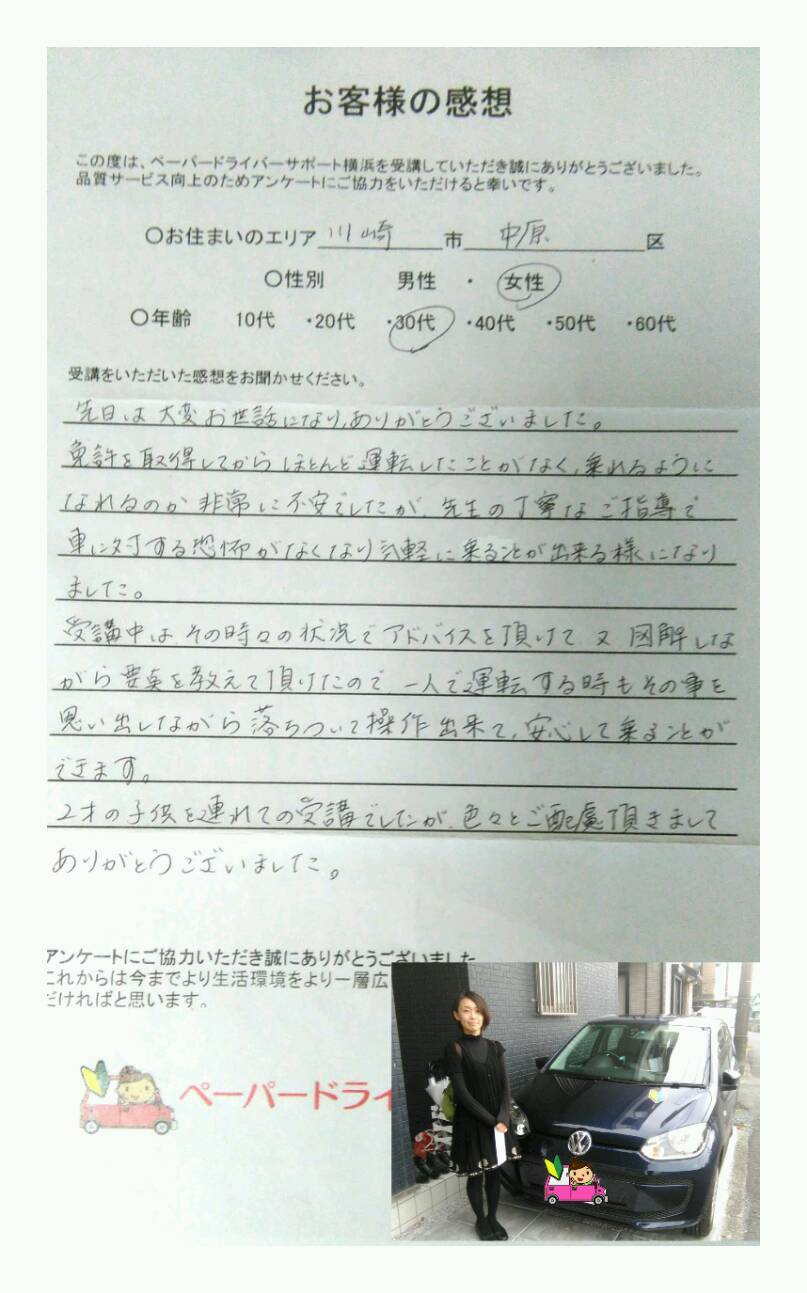 お客様の感想
この度は、ペーパードライバーサポート横浜を受講していただき誠にありがとうございました。
品質サービス向上のためアンケートにご協力をいただけると幸いです。
〇お住まいのエリア 川崎 市 中原 区
〇性別 男性 ・ 女性
〇年齢 10代 ・20代 ・30代 ・40代 ・50代 ・60代
受講をいただいた感想をお聞かせください。
先日は大変お世話になり、ありがとうございました。
免許を取得してからほとんど運転したことがなく、乗れるように
なれるのか非常に不安でしたが、先生の丁寧なご指導で
車に対する恐怖がなくなり気軽に乗ることが出来る様になり
ました。
受講中は、その時々の状況でアドバイスを頂けて、又、図解しな
がら要点を教えて頂けたので、一人で運転する時もその事を
思い出しながら落ちついて操作出来て、安心して乗ることが
できます。
2才の子供を連れての受講でしたが、色々とご配慮頂きまして
ありがとうございました。
アンケートにご協力いただき誠にありがとうございました
これからは今までより生活環境をより一層広
だければと思います。
ペーパードライ